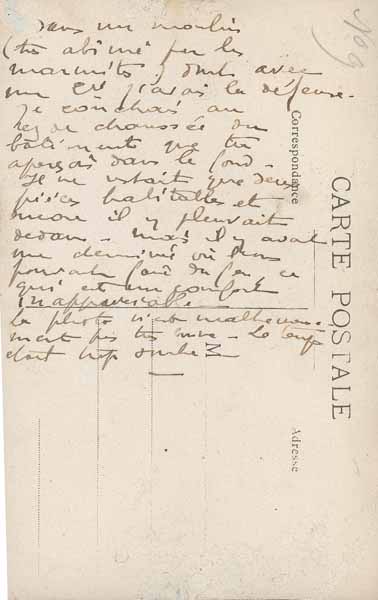 dans un moulin
(très abimé par les
marmites) dont avec
ma Cie j'avais la défense.
Je couchais au
rez de chaussée du
bâtiment que tu
aperçois dans le fond.
Il ne restait que deux
pièces habitables et
encore il y pleuvait
dedans. mais il y avait
une cheminée où l'on
pouvait faire du feu, ce
qui est un confort
inappréciable
La photo n'est malheureuse-
ment pas très bonne. Le temps
était trop sombre
709
CARTE POSTALE
Correspondance
Adresse